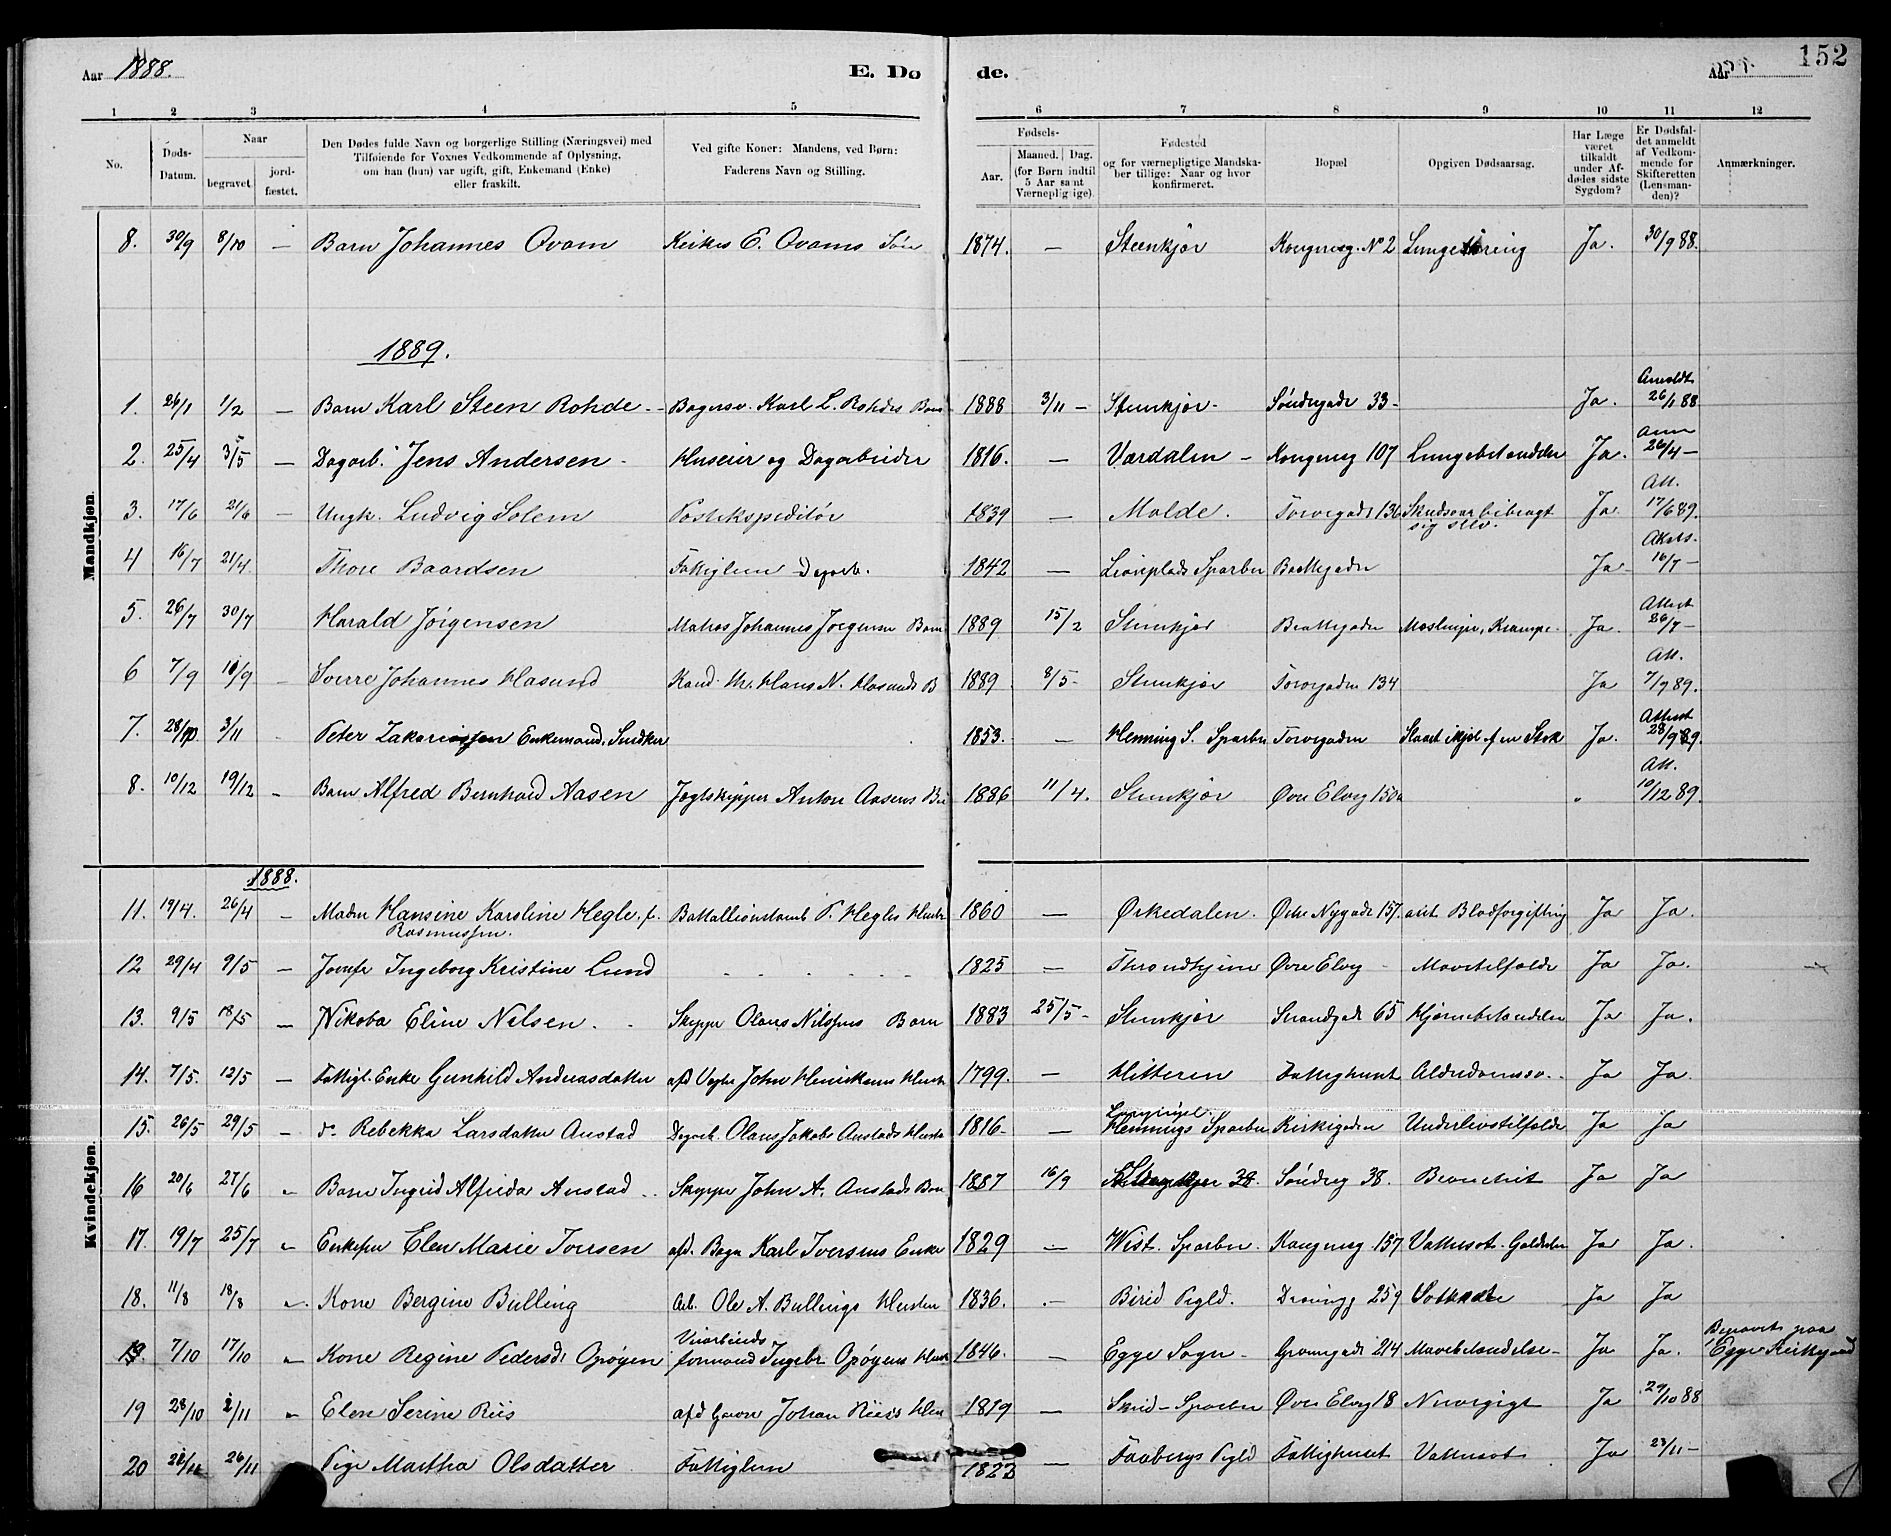 152
Aar 1888.
E. Dø de.
Aar
1 2 3 4 5 6 7 8 9 10 11 12
No.
Døds-Datum.
Naar
begravet.
jord-fæstet.
Den Dødes fulde Navn og borgerlige Stilling (Næringsvei) med
Tilføiende for Voxnes Vedkommende af Oplysning,
om han (hun) var ugift, gift, Enkemand (Enke)
eller fraskilt.
Ved gifte Koner: Mandens, ved Børn:
Faderens Navn og Stilling.
Fødsels-
Aar.
Maaned. Dag.
(for Børn indtil
5 Aar samt
Værnepligtige).
Fødested
og for værnepligtige Mandska-
ber tillige: Naar og hvor
konfirmeret.
Bopæl
Opgiven Dødsaarsag.
Har Læge
været
tilkaldt
under Af-
dødes sidste
Sygdom?
Er Dødsfal-
det anmeldt
af Vedkom-
mende for
Skifteretten
(Lensman-
den)?
Anmærkninger.
Mandkjøn.
8. 30/9 8/10 — Barn Johannes Qvam E. Qvams Søn 1874. — Steenkjør Kongensg. No 2 Lungetæring Ja. 30/9 88.
1889.
1. 26/1 1/2 — Barn Karl Steen Rohde Bagersv. Karl L. Rohdes Barn 1888 3/11 — Steenkjør Søndregade 33 Ja. Anmeldt 26/1 88
2. 25/4 3/5 — Dagarb. Jens Andersen Huseier og Dagarbeider 1816. — Værdalen Kongensg 107 Lungebetændelse Ja. Anm 26/4 —
3. 17/6 21/6 — Ungk. Ludvig Solem Postekspeditør 1839 — Molde. Torvegade 136 Skudsaar bibragt sig selv. Ja Att. 17/6 89.
4 16/7 21/4 Thore Baardsen Fattiglem Dagarb. 1842 — Sparbu Ja 16/7 —
5. 26/7 30/7 Harald Jørgensen Matros Johannes Jørgensen Barn 1889 15/2 Steenkjør Meslinger, Krampe Ja. Attest 26/7 —
6 7/9 10/9 Sverre Johannes Hasund Kand. th. Hans N. Hasunds B 1889 8/5 Steenkjør Torvegaden 134 Ja Att. 7/9 89.
7. 28/10 3/11 Peter Zakariassen Enkemand, Snedker 1853. — Henning S. Sparbu Torvegaden Slaaet ihjel af en Stok Ja. Attest 28/9 89.
8. 10/12 19/12 Barn Alfred Bernhard Aasen Jægtskipper Anton Aasens Bn 1886 11/4. Steenkjør Øvre Elveg 150a " Att. 10/12 89.
Kvindekjøn.
1888.
11. 19/4. 26/4 — Madm Hansine Karoline Hegle, f. Rasmussen. P. Hegles Hustru 1860 — Ørkedalen. Østre Nygade 157. Blodforgiftning Ja Ja.
12 29/4 9/5 — Jomfr Ingeborg Kristine Lund 1825 — Throndhjem Øvre Elveg Mavetilfælde Ja Ja.
13. 9/5 18/5 — Nikoba Eline Nilsen Skipper Olaus Nilssens Barn 1883 25/5 Steenkjør Strandgade 65 Hjernebetændelse Ja Ja.
14. 7/5. 12/5 — Fattigl. Enke Gunhild Andreasdatter afd John Henriksens Hustr 1799. — Hitteren Fattighuset Alderdomssv. Ja Ja.
15. 26/5 29/5 — do Rebekka Larsdatter Anstad Dagarb. Olaus Jakobs Anstads Hustru 1816 — Hennings Sparbu Kirkegaden Underlivstilfælde Ja Ja
16 20/6 27/6 " Barn Ingrid Alfrida Anstad Skipper John A. Anstads Barn 1887 16/9 Søndreg 38. Bronchit Ja Ja
17. 19/7 25/7 " Enkefru Elen Marie Iversen afd. Karl Iversens Enke 1829 — Wist. Sparbu Kongensg 157 Vattersot. Ja Ja.
18. 11/8 18/8 " Kone Bergine Bulling Arb. Ole A. Bullings Hustru 1836. — Birid Pgld. 259 Ja Ja
19. 7/10 17/10 " Kone Regine Pedersd. Opøyen formand Ingebr. Opøyens Hustr 1846. — Egge Sogn 214 Mavebetændelse Ja Ja. Begravet paa Egge Kirkegaard
19 28/10 2/11 " Elen Serine Riis afd Johan Riis's 1819 — Sparbu Øvre Elveg 18 Nervegigt Ja 29/10 88
20 26/11 Pige Martha Olsdatter Fattiglem 1822 — Faabergs Pgld Fattighuset Vattersot Ja 23/11 —